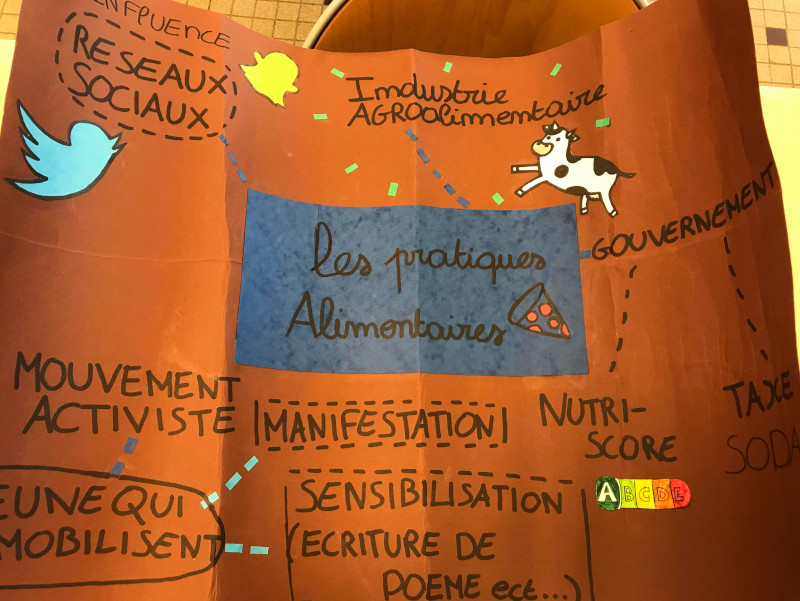 ENFPUENCE
RESEAUX
SOCIAUX
Imdustrie
AGROalimentaire
GOUVERNEMENT
les pratiques
Alimentaires
MOUVEMENT
ACTIVISTE
MANIFESTATION
NUTRI-
SCORE
TAXE
SODA
EUNE QUI
MOBILISENT
SENSIBILISATION
(ECRITURE DE
POEME ect...)
ABCDE